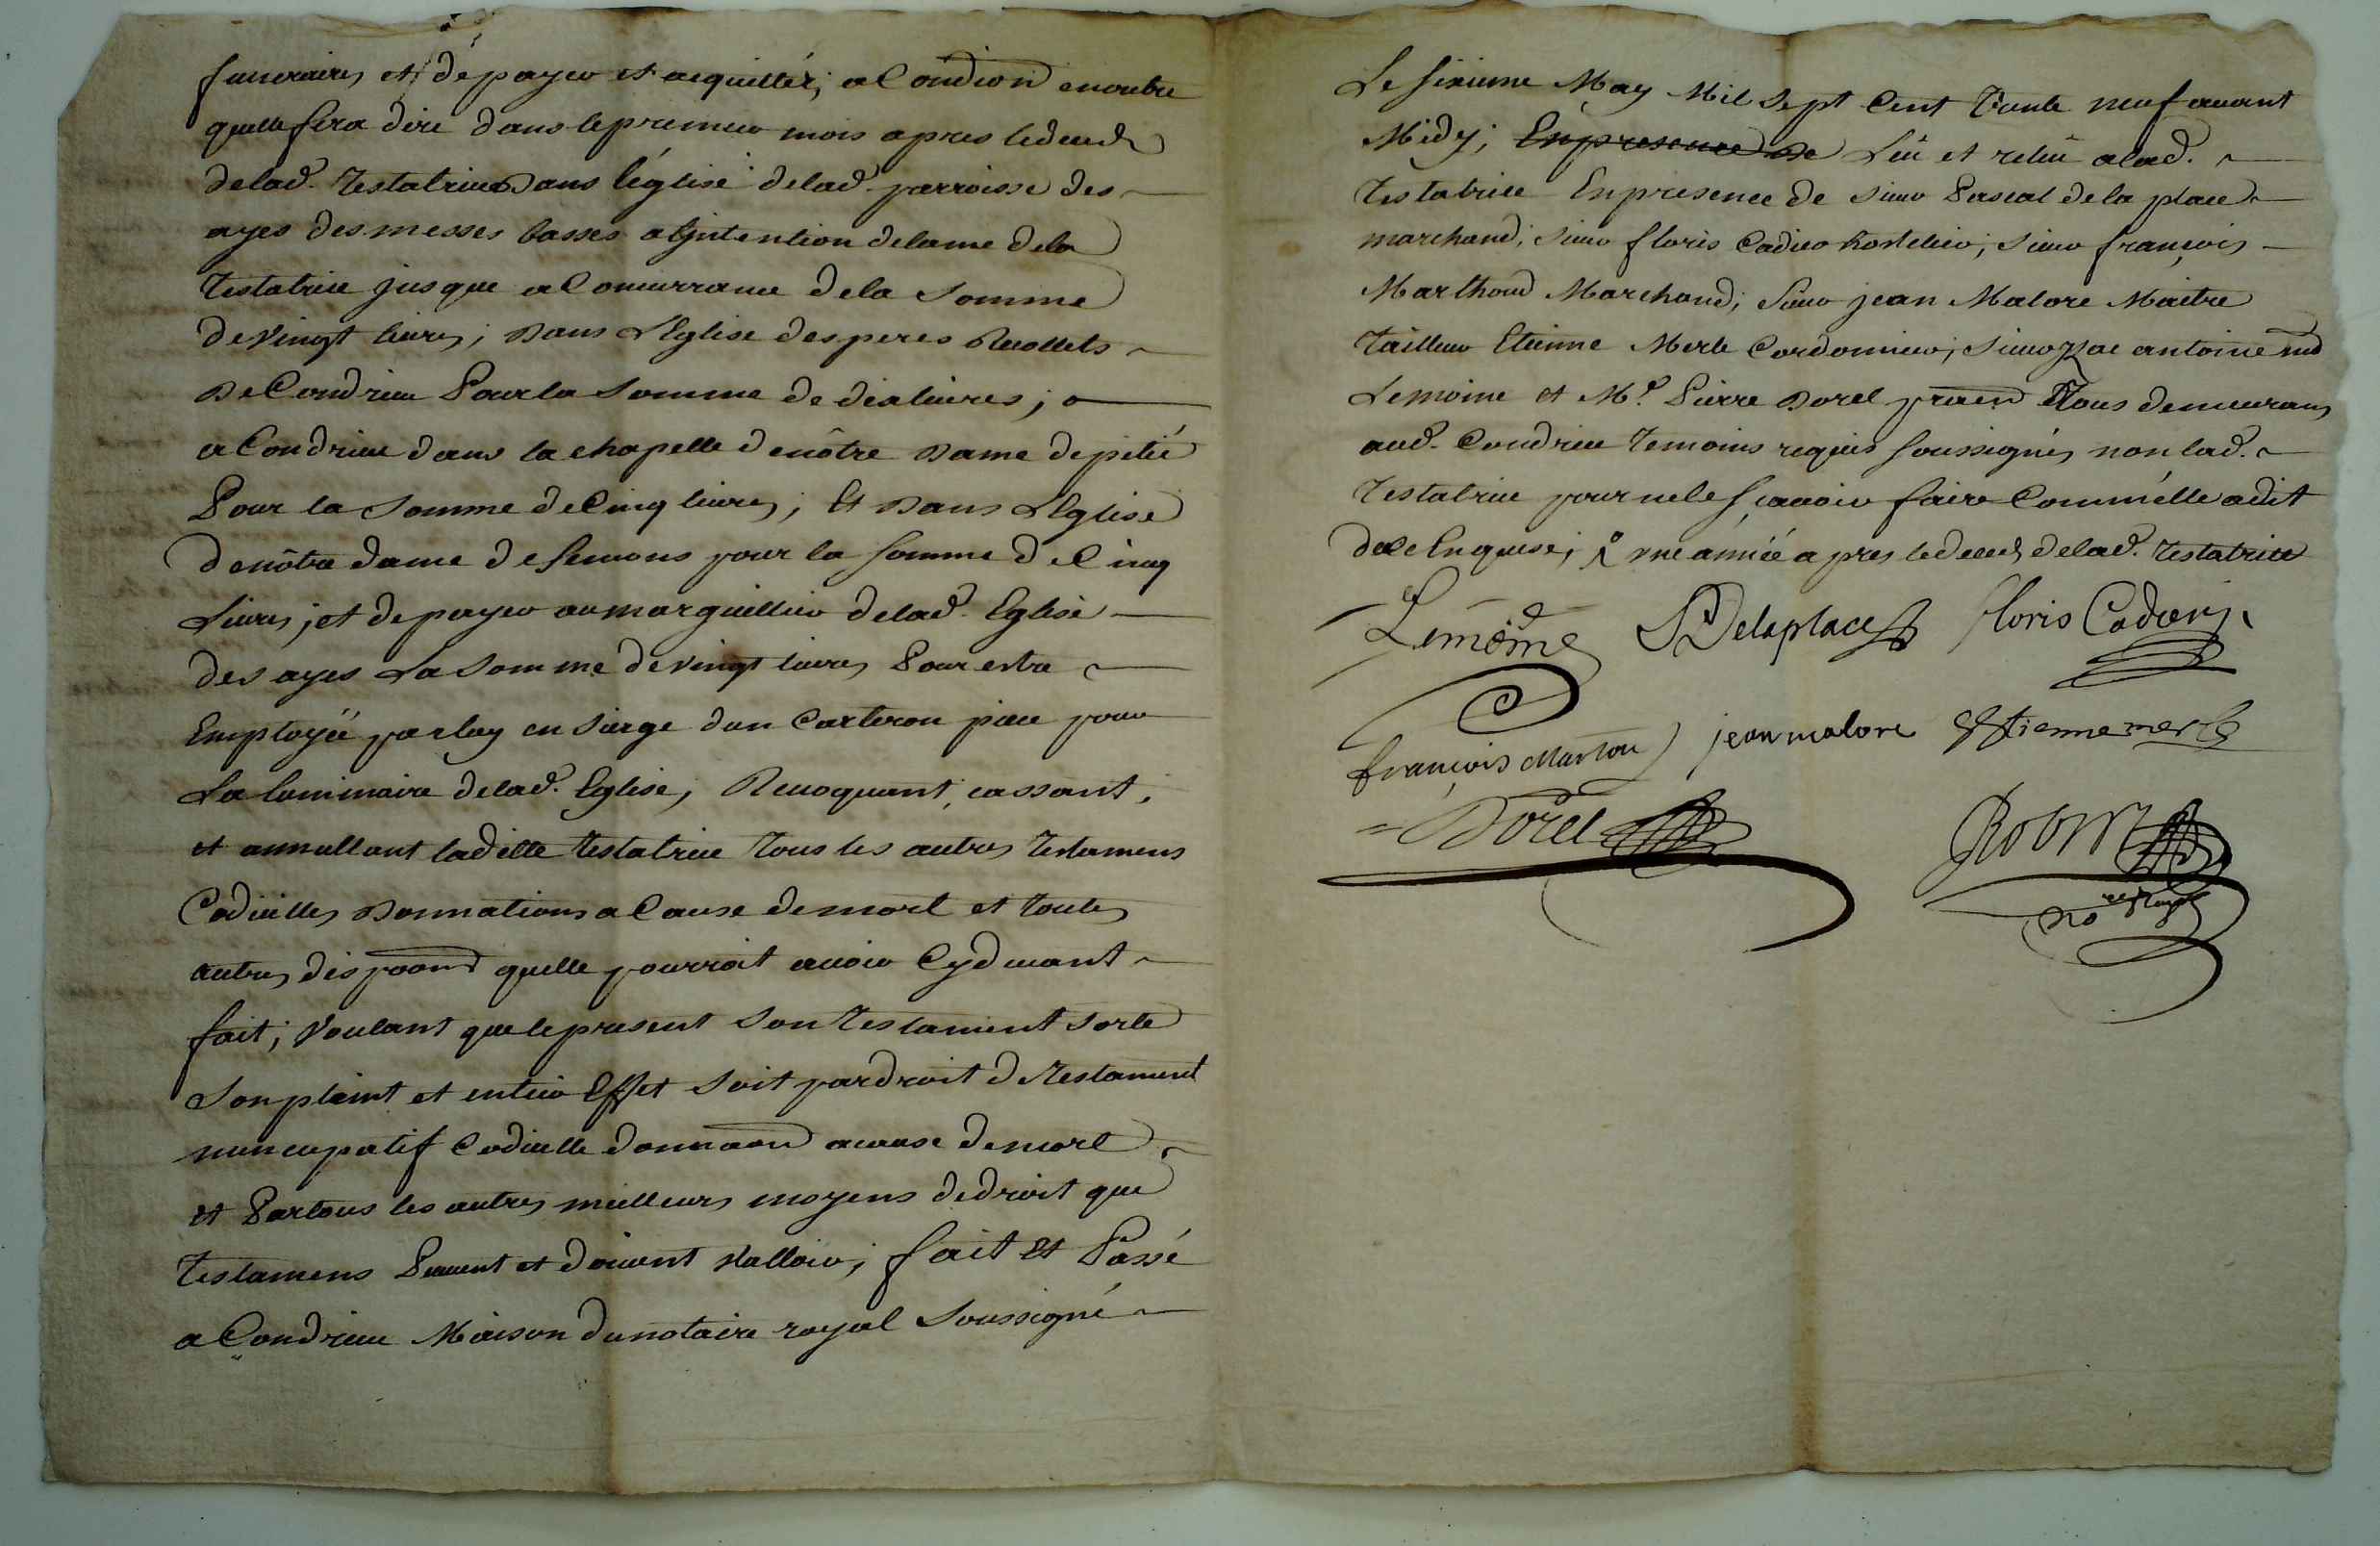 funeraires et de payer et acquitter; a Condi͠on en outre
quelle fera dire dans le premier mois apres le deceds
de lad. Testatrice Dans l'église de lad. parroisse des
ayes des messes basses a l'jntention de lame de la
Testatrice jusque a Concurrance de la Somme
de Vingt livres; Dans L'Eglise des peres Recollets
De Condrieu Pour la Somme de dix livres;
a Condrieu dans la chapelle de nôtre Dame de pitié
Pour la Somme de Cinq livres; Et Dans L'Eglise
de nôtre dame de semons pour la somme de Cinq
Livres; et de payer au marguillier de lad. Eglise
des ayes La Somme de vingt livres Pour estre
Employée par luy en Sierge d'un Carteron piece pour
La luminaire de lad. Eglise; Revoquant, cassant,
et annullant laditte testatrice tous les autres Testamens
Codicilles Donnations a Cause de mort et toutes
autres dispo͠ons quelle pourroit avoir Cydevant
fait; Voulant que le present Son Testament Sorte
Son pleint et entier Effet Soit par droit de Testament
nuncupatif Codicille donna͠on a cause de mort
et Par tous les autres meilleurs moyens de droit que
Testamens Peuvent et doivent Valloir; fait Et Passé
a Condrieu Maison du notaire royal Soussigné
Le sixieme May Mil Sept Cent Trente neuf avant
Midy; En presence de Leû et releû a lad.
Testatrice En presence de Sieur Pascal de la place
marchand; Sieur floris Cadier hostelier; Sieur françois
Marthoud Marchand; Sieur jean Malore Maitre
Tailleur Etienne Merle Cordonnier; Sieur jzac antoine md
Lemoine et Me. Pierre Dorel prat͠en Tous demeurans
aud. Condrieu temoins requis soussignés non lad.
Testatrice pour ne le sçavoir faire Comm'elle a dit
de ce Enquise; une année apres le deceds de lad. Testatrice
Lemoine PDelaplace floris Cadier
françois Marton jean malore Estienne merle
Dorel Robin
no re Royal